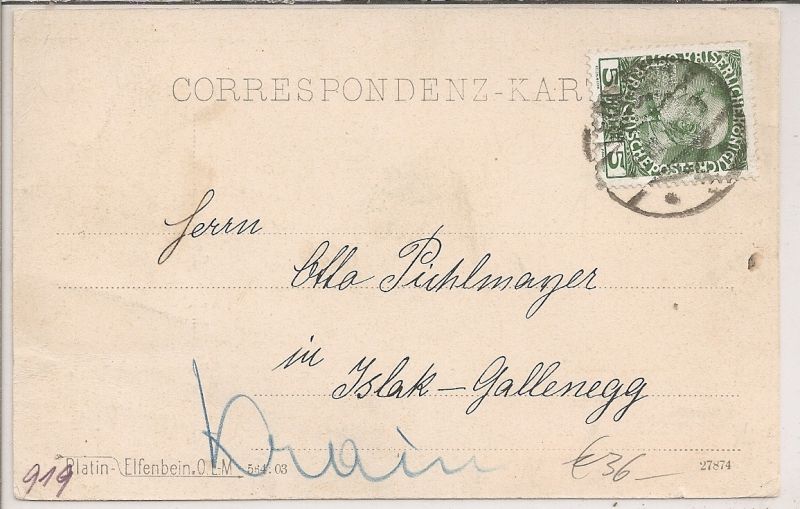 CORRESPONDENZ-KAR
5 5
KAISERLICHE KÖNIGL
ÖSTERREICHISCHE POST
Herrn
Otto Pichlmayer
in
Islak - Gallenegg
Krain
919
Platin-Elfenbein. O.L.M 554: 03
€36-
27874